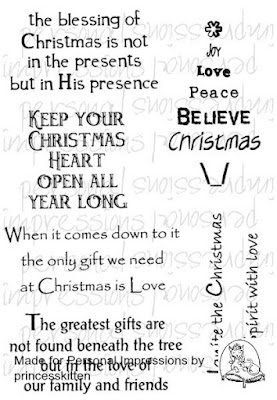 the blessing of
Christmas is not
in the presents
but in His presence
Joy
Love
Peace
BELIEVE
Christmas
KEEP YOUR
CHRISTMAS
HEART
OPEN ALL
YEAR LONG
When it comes down to it
the only gift we need
at Christmas is Love
Ignite the Christmas
spirit with love
The greatest gifts are
not found beneath the tree
but in the love of
our family and friends
Made for Personal Impressions by
princesskitten
personal
impressions